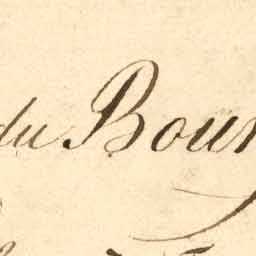 du Bour